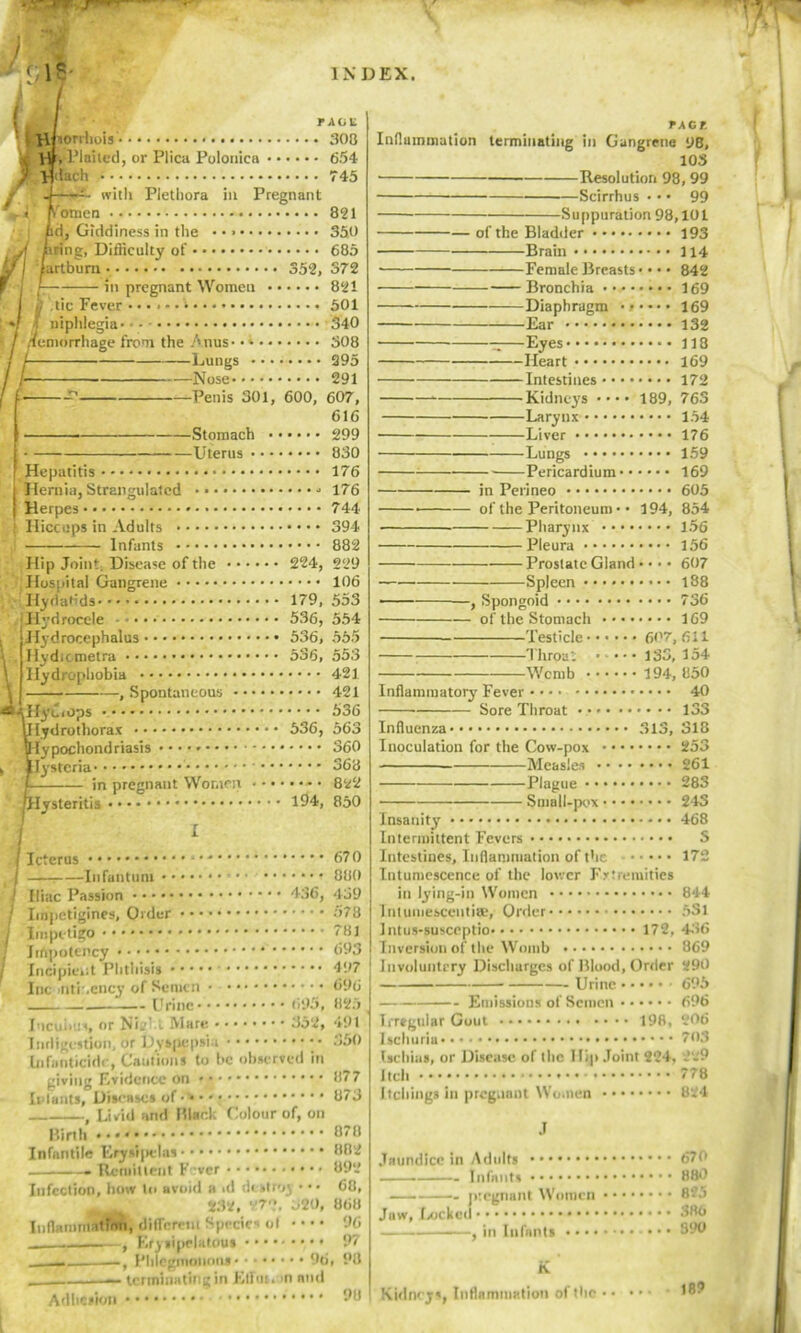 918
INDEX.
PAGE
308
Plaited, or Plica Polonica 654
745
with Plethora in Pregnant
821
Giddiness in the 350
Difficulty of 685
352, 372
in pregnant Women 821
Fever 501
340
from the Anus 308
Lungs 295
Nose 291
Penis 301, 600, 607,
616
Stomach 299
Uterus 830
Hepatitis 176
Hernia, Strangulated 176
Herpes 744
Hiccups in Adults 394
Infants 882
Hip Joint, Disease of the 224, 229
Hospital Gangrene 106
Hydatids 179, 553
Hydrocele 536, 554
Hydrocephalus 536, 555
Hydrometra 536, 553
Hydrophobia 421
, Spontaneous 421
Hydrops 536
Hydrothorax 536, 563
Hypochondriasis 360
Hysteria 368
in pregnant Women 822
Hysteritis 194, 850
I
Icterus 670
Infantum 880
Iliac Passion 436, 439
Impetigines, Order 578
Impetigo 781
Impotency 693
Incipient Phthisis 497
Incontinency of Semen 696
Urine 695, 825
Incubus, or Night Mare 352, 491
Indigestion, or Dyspepsia 350
Infanticide, Cautions to be observed in
giving Evidence on 877
Infants, Diseases of 873
, Livid and Black Colour of, on
Birth 878
Infantile Erysipelas 882
Remittent Fever 892
Infection, how to avoid and destroy 68,
232, 272, 320, 868
Inflammation, different Species of 96
, Erysipelatous 97
, Phlegmonous 96, 98
terminating in Effusion and
Adhesion 98
PAGE
Inflammation terminating in Gangrene 98,
103
Resolution 98, 99
Scirrhus 99
Suppuration 98, 101
of the Bladder 193
Brain 114
Female Breasts 842
Bronchia 169
Diaphragm 169
Ear 132
Eyes 118
Heart 169
Intestines 172
Kidneys 189, 763
Larynx 154
Liver 176
Lungs 159
Pericardium 169
in Perineo 605
of the Peritoneum 194, 854
Pharynx 156
Pleura 156
Prostate Gland 607
Spleen 188
, Spongoid 736
of the Stomach 169
Testicle 607, 611
Throat 133, 154
Womb 194, 850
Inflammatory Fever 40
Sore Throat 133
Influenza 313, 318
Inoculation for the Cow-pox 253
Measles 261
Plague 283
Small-pox 243
Insanity 468
Intermittent Fevers 3
Intestines, Inflammation of the 172
Intumescence of the lower Extremities
in lying-in Women 844
Intumescentiæ, Order 531
Intus-susceptio 172, 436
Inversion of the Womb 869
Involuntary Discharges of Blood, Order 290
Urine 695
Emissions of Semen 696
Irregular Gout 198, 206
Ischuria 703
Ischias, or Disease of the Hip Joint 224, 229
Itch 778
Itchings in pregnant Women 824
J
Jaundice in Adults 670
Infants 880
pregnant Women 825
Jaw, Locked 386
, in Infants 890
K
Kidneys, Inflammation of the 189